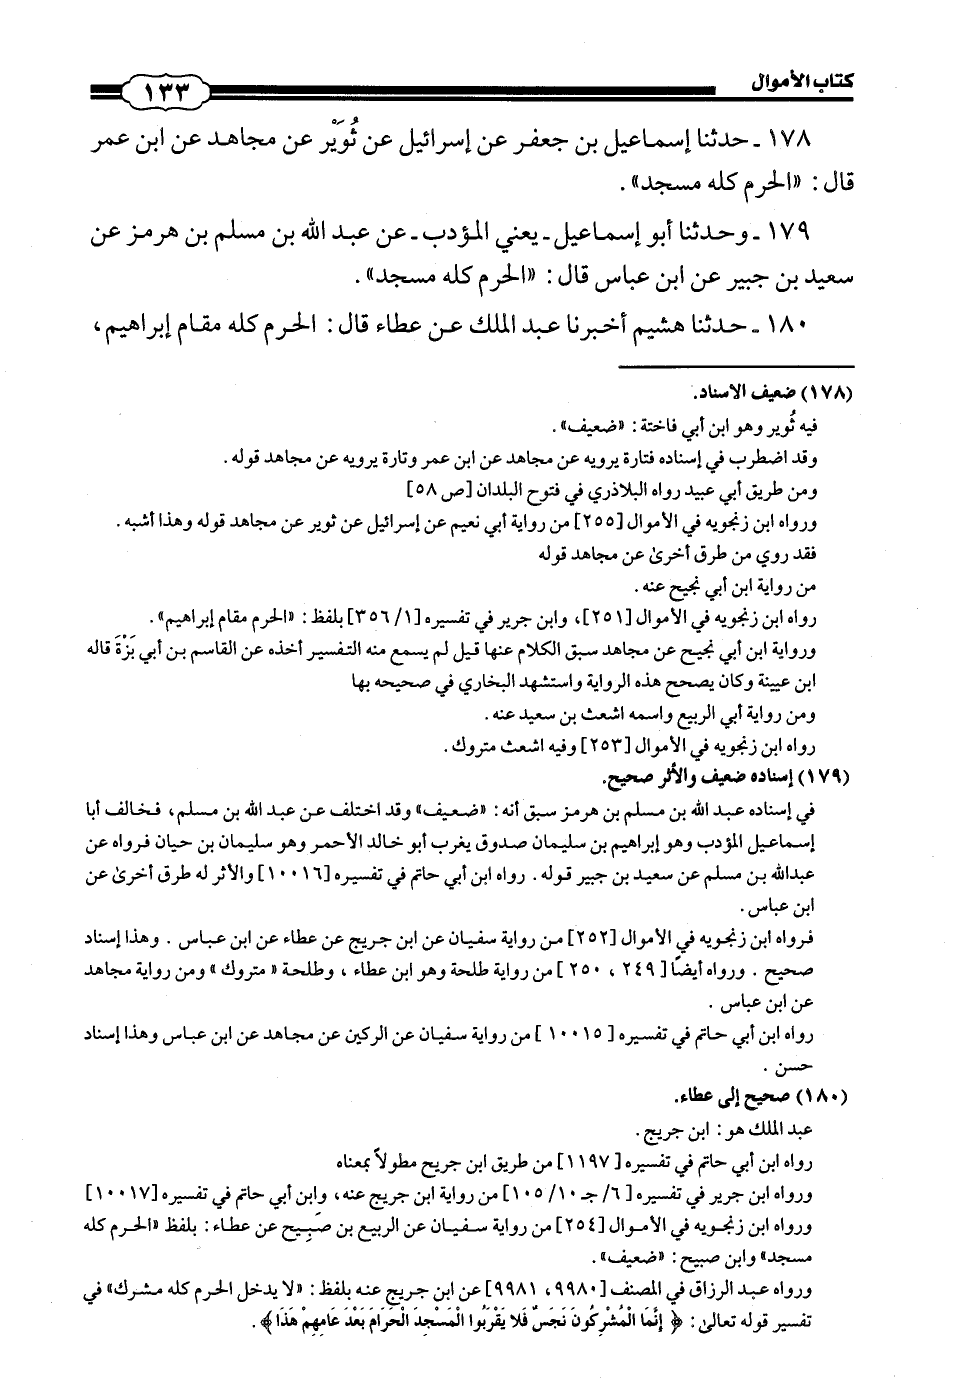 كتاب الأموال
١٣٣
١٧٨ ـ حدثنا إسماعيل بن جعفر عن إسرائيل عن ثُوَيْر عن مجاهد عن ابن عمر
قال : «الحرم كله مسجد» .
١٧٩ ـ وحدثنا أبو إسماعيل ـ يعني المؤدب ـ عن عبد الله بن مسلم بن هرمز عن
سعيد بن جبير عن ابن عباس قال : «الحرم كله مسجد» .
١٨٠ ـ حدثنا هشيم أخبرنا عبد الملك عن عطاء قال : الحرم كله مقام إبراهيم ،
(١٧٨) ضعيف الاسناد.
فيه ثُوير وهو ابن أبي فاختة : «ضعيف» .
وقد اضطرب في إسناده فتارة يرويه عن مجاهد عن ابن عمر وتارة يرويه عن مجاهد قوله .
ومن طريق أبي عبيد رواه البلاذري في فتوح البلدان [ص ٥٨]
ورواه ابن زنجويه في الأموال [٢٥٥] من رواية أبي نعيم عن إسرائيل عن ثوير عن مجاهد قوله وهذا أشبه .
فقد روي من طرق أخرىٰ عن مجاهد قوله
من رواية ابن أبي نجيح عنه .
رواه ابن زنجويه في الأموال [٢٥١]، وابن جرير في تفسيره [١/ ٣٥٦] بلفظ : «الحرم مقام إبراهيم» .
ورواية ابن أبي نجيح عن مجاهد سبق الكلام عنها قيل لم يسمع منه التفسير أخذه عن القاسم بن أبي بَزْةَ قاله
ابن عيينة وكان يصحح هذه الرواية واستشهد البخاري في صحيحه بها
ومن رواية أبي الربيع واسمه اشعث بن سعيد عنه .
رواه ابن زنجويه في الأموال [٢٥٣] وفيه اشعث متروك .
(١٧٩) إسناده ضعيف والأثر صحيح.
في إسناده عبد الله بن مسلم بن هرمز سبق أنه : «ضعيف» وقد اختلف عن عبد الله بن مسلم، فخالف أبا
إسماعيل المؤدب وهو إبراهيم بن سليمان صدوق يغرب أبو خالد الأحمر وهو سليمان بن حيان فرواه عن
عبدالله بن مسلم عن سعيد بن جبير قوله . رواه ابن أبي حاتم في تفسيره [١٠٠١٦] والأثر له طرق أخرىٰ عن
ابن عباس .
فرواه ابن زنجويه في الأموال [٢٥٢] من رواية سفيان عن ابن جريج عن عطاء عن ابن عباس . وهذا إسناد
صحيح . ورواه أيضًا [ ٢٤٩ ، ٢٥٠ ] من رواية طلحة وهو ابن عطاء ، وطلحة « متروك » ومن رواية مجاهد
عن ابن عباس .
رواه ابن أبي حاتم في تفسيره [ ١٠٠١٥ ] من رواية سفيان عن الركين عن مجاهد عن ابن عباس وهذا إسناد
حسن .
(١٨٠) صحيح إلى عطاء.
عبد الملك هو : ابن جريج .
رواه ابن أبي حاتم في تفسيره [١١٩٧] من طريق ابن جريج مطولاً بمعناه
ورواه ابن جرير في تفسيره [ ٦/ جـ ١٠/ ١٠٥] من رواية ابن جريج عنه، وابن أبي حاتم في تفسيره [١٠٠١٧]
ورواه ابن زنجويه في الأموال [٢٥٤] من رواية سفيان عن الربيع بن صَبِيح عن عطاء : بلفظ «الحرم كله
مسجد» وابن صبيح : «ضعيف» .
ورواه عبد الرزاق في المصنف [٩٩٨٠، ٩٩٨١] عن ابن جريج عنه بلفظ : «لا يدخل الحرم كله مشرك» في
تفسير قوله تعالىٰ : ﴿ إِنَّمَا الْمُشْرِكُونَ نَجَسٌ فَلا يَقْرَبُوا الْمَسْجِدَ الْحَرَامَ بَعْدَ عَامِهِمْ هَذَا ﴾ .